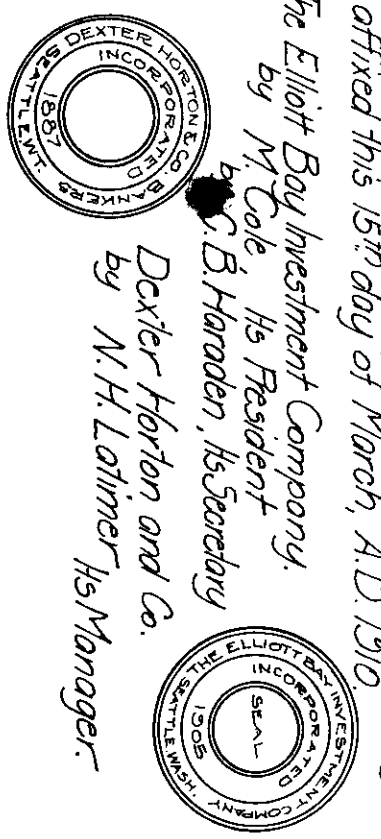 affixed this 15th day of March, A.D. 1910.
The Elliott Bay Investment Company.
by M. Cole Its President
by C. B. Haraden, Its Secretary
Dexter Horton and Co.
by N. H. Latimer Its Manager.
DEXTER HORTON & CO. BANKERS
SEATTLE, W.T.
INCORPORATED
1887
THE ELLIOTT BAY INVESTMENT COMPANY
SEATTLE, WASH.
INCORPORATED
SEAL
1905